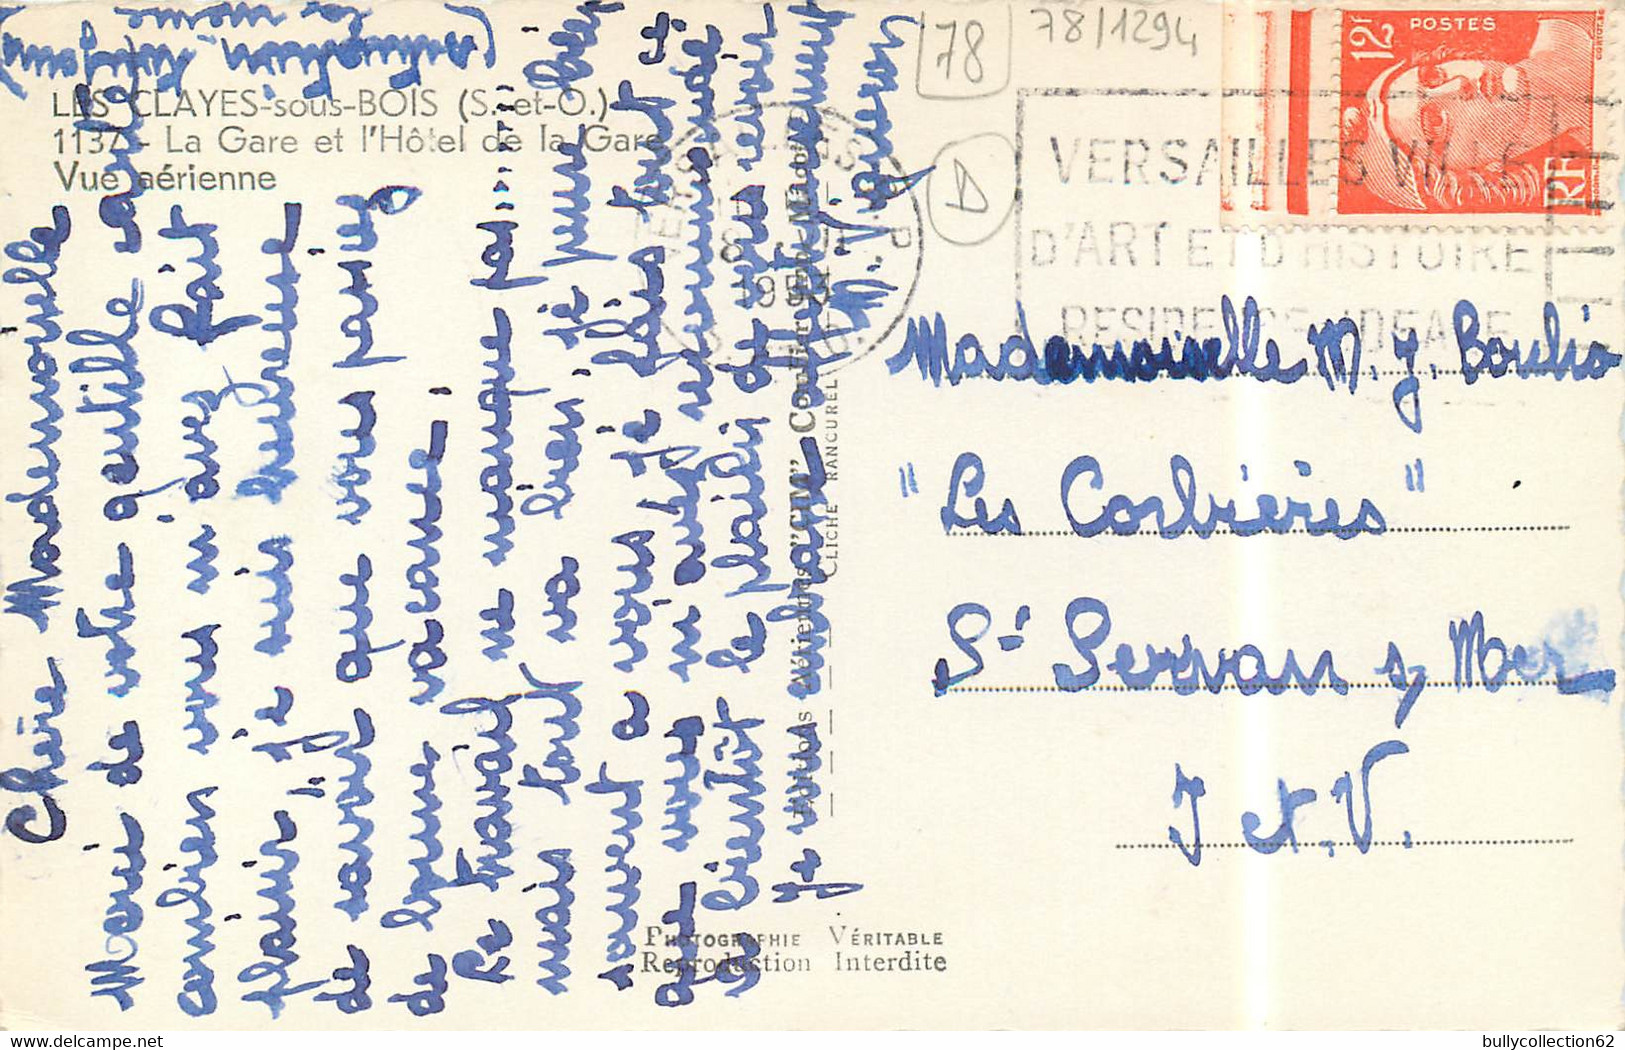 LES CLAYES-sous-BOIS (S.-et-O.)
1137 - La Gare et l'Hôtel de la Gare
Vue aérienne
Chère Mademoiselle
Merci de votre gentille carte
combien vous m'avez fait
plaisir, je suis heureuse
de savoir que vous passiez
de bonnes vacances.
Le travail ne manque pas......
mais tout va bien, je pense bien
souvent à vous, je fais tout ce
que vous m'aviez recommandé
Je bientôt le plaisir de vous revoir
Je vous embrasse affectueusement
M. Vigneron
78
78/1294
POSTES
12F
RF
VERSAILLES
8
19
VERSAILLES VILLE
D'ART ET D'HISTOIRE
RESIDENCE IDEALE
Mademoiselle M. J. Bouhio
"Les Corbières"
St Servan s/ Mer
I et. V.
CLICHÉ RANCUREL
PHOTOGRAPHIE VÉRITABLE
Reproduction Interdite
bullycollection62